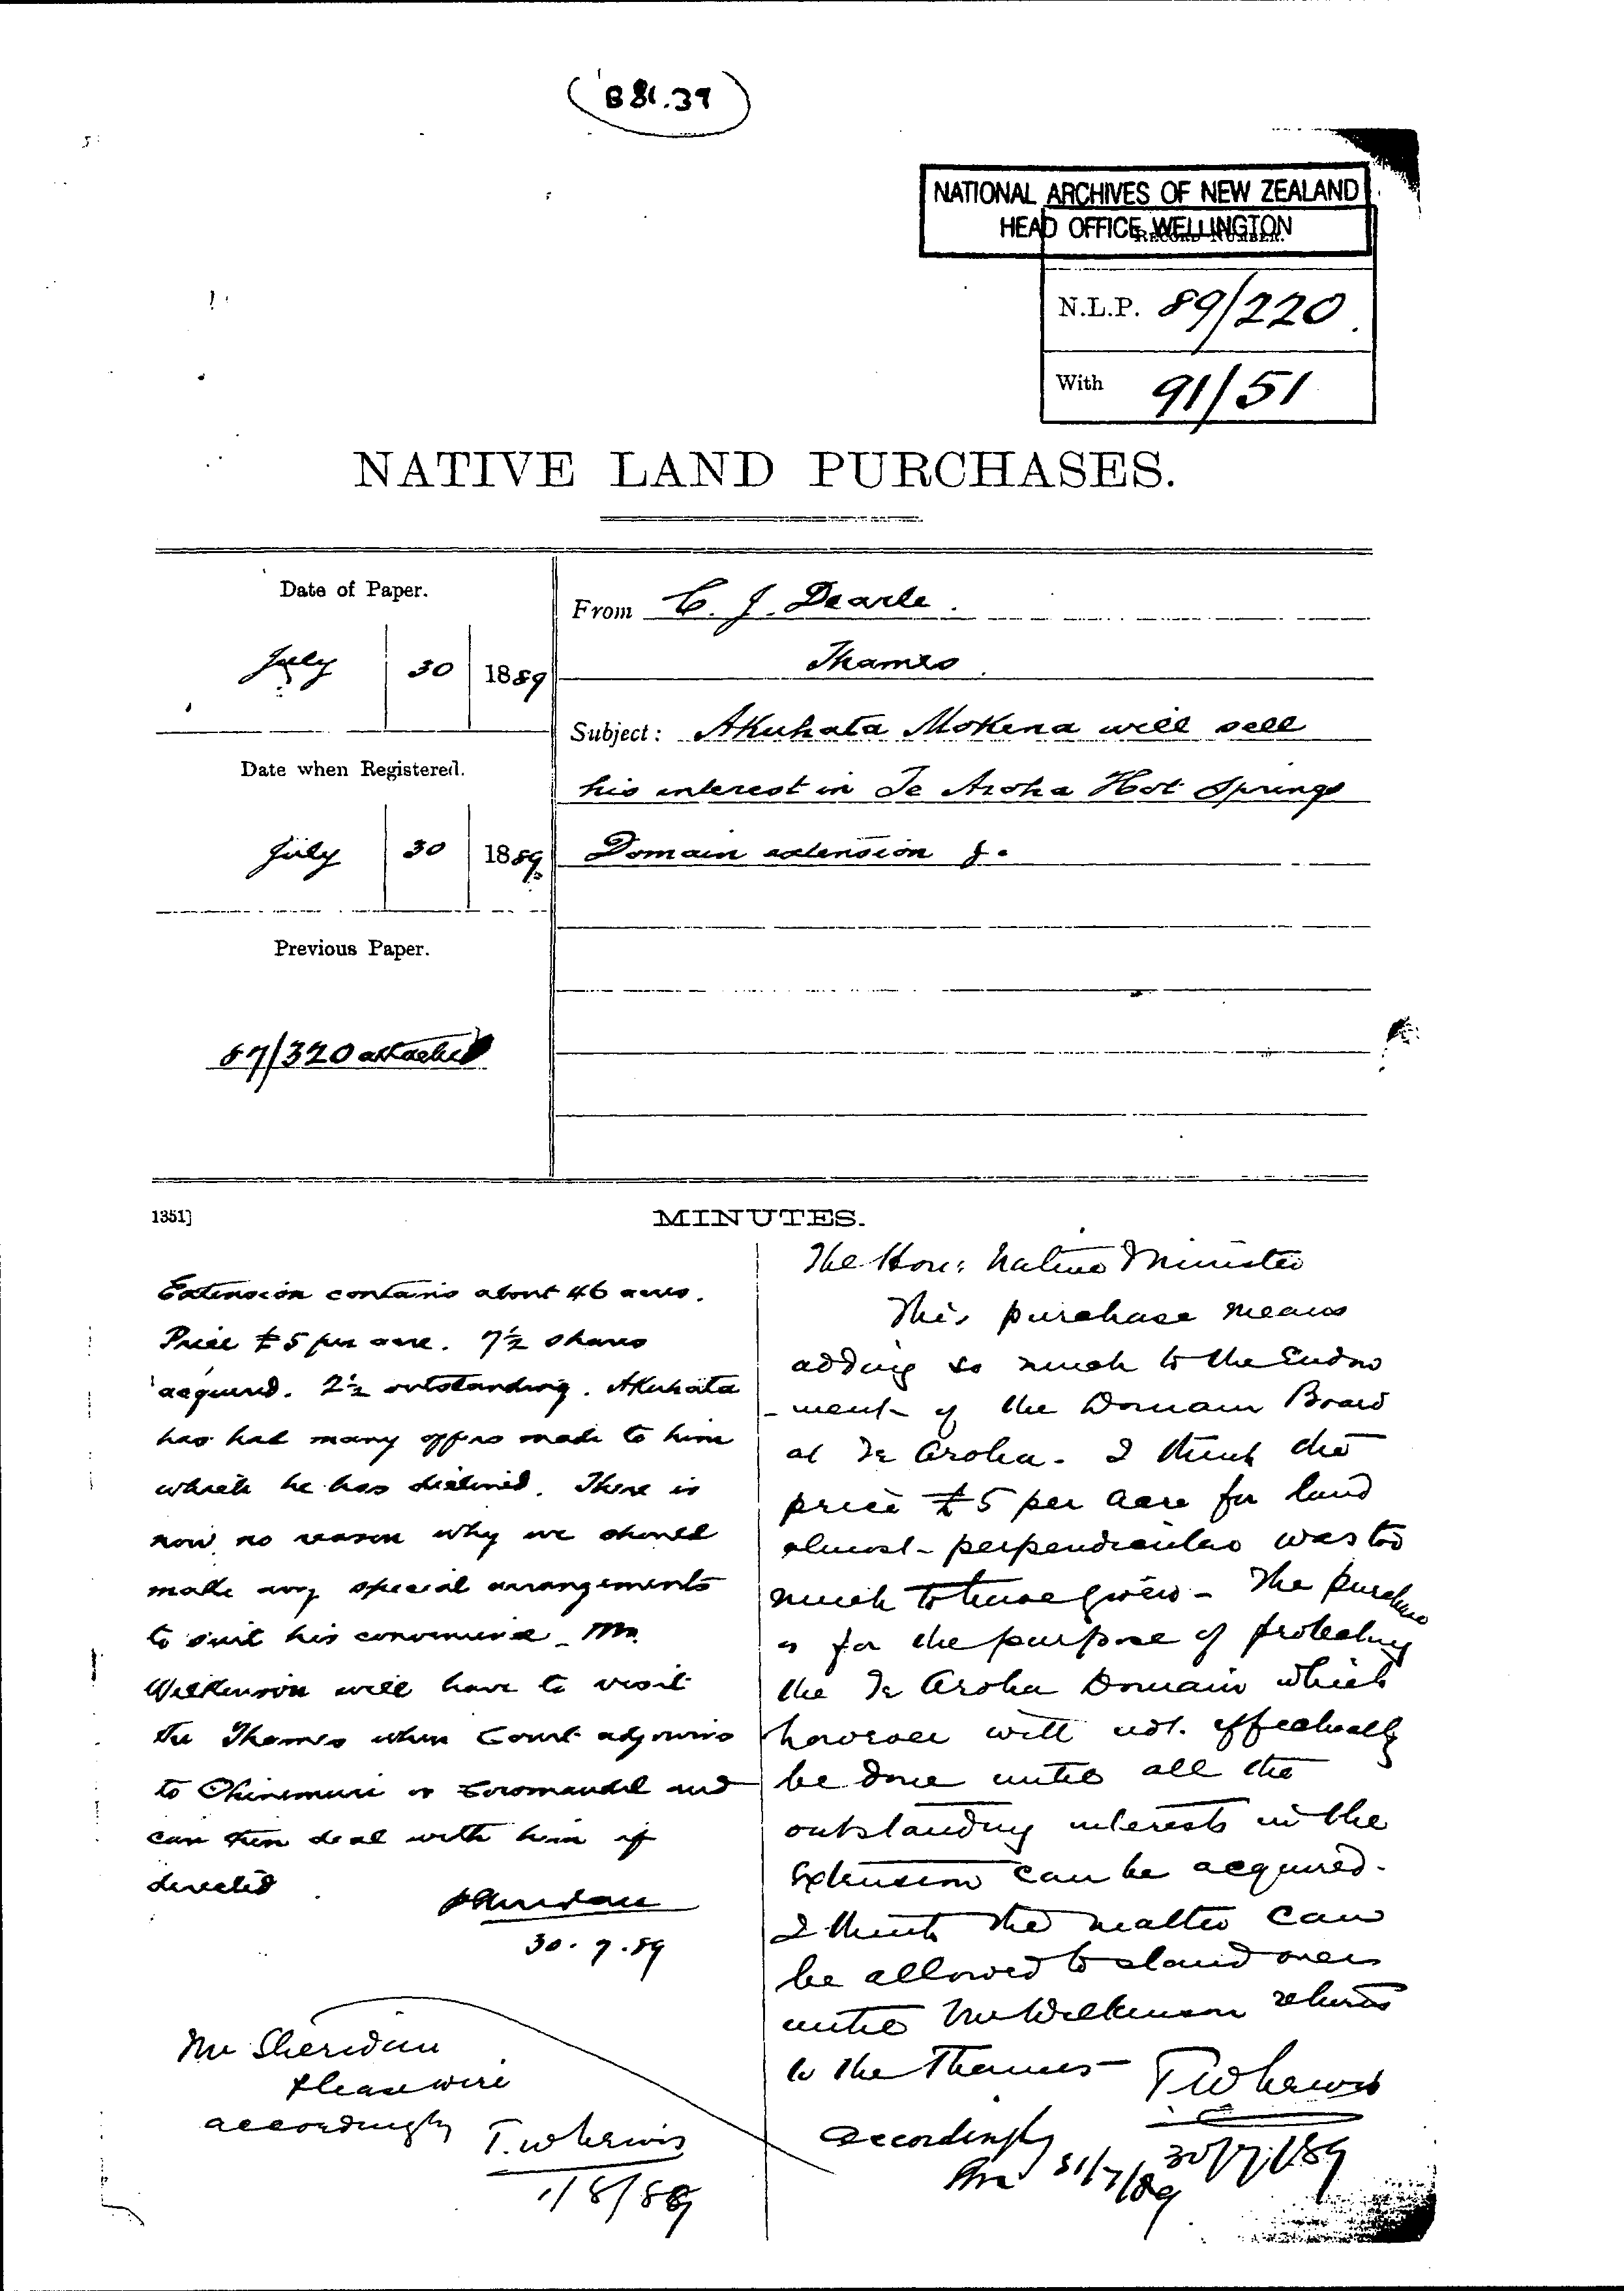 B 81.39
NATIONAL ARCHIVES OF NEW ZEALAND
HEAD OFFICE, WELLINGTON
RECORD NUMBER.
N.L.P. 89/220
With 91/51
NATIVE LAND PURCHASES.
Date of Paper.
July 30 1889
Date when Registered.
July 30 1889
Previous Paper.
87/320 attached
From C. J. Dearle.
Thames.
Subject: Akuhata Mokena will sell
his interest in Te Aroha Hot Springs
Domain extension &.
1351]
MINUTES.
Extension contains about 46 acres.
Price £5 per acre. 7½ shares
acquired. 2½ outstanding. Akuhata
has had many offers made to him
which he has declined. There is
now no reason why we should
make any special arrangements
to suit his convenience. Mr.
Wilkinson will have to visit
the Thames when Court adjourns
to Ohinemuri or Coromandel and
can then deal with him if
directed.
PSheridan
30.7.89
Mr Sheridan
Please wire
accordingly
T.W Lewis
1/8/89
The Hon: Native Minister
This purchase means
adding so much to the Endow
-ment of the Domain Board
at Te Aroha. I think the
price £5 per acre for land
almost perpendicular was too
much to have given - The purchase
is for the purpose of protecting
the Te Aroha Domain which
however will not effectually
be done until all the
outstanding interests in the
Extension can be acquired.
I think the matter can
be allowed to stand over
until Mr Wilkinson returns
to the Thames
TW Lewis
30/7/89
Accordingly
31/7/89